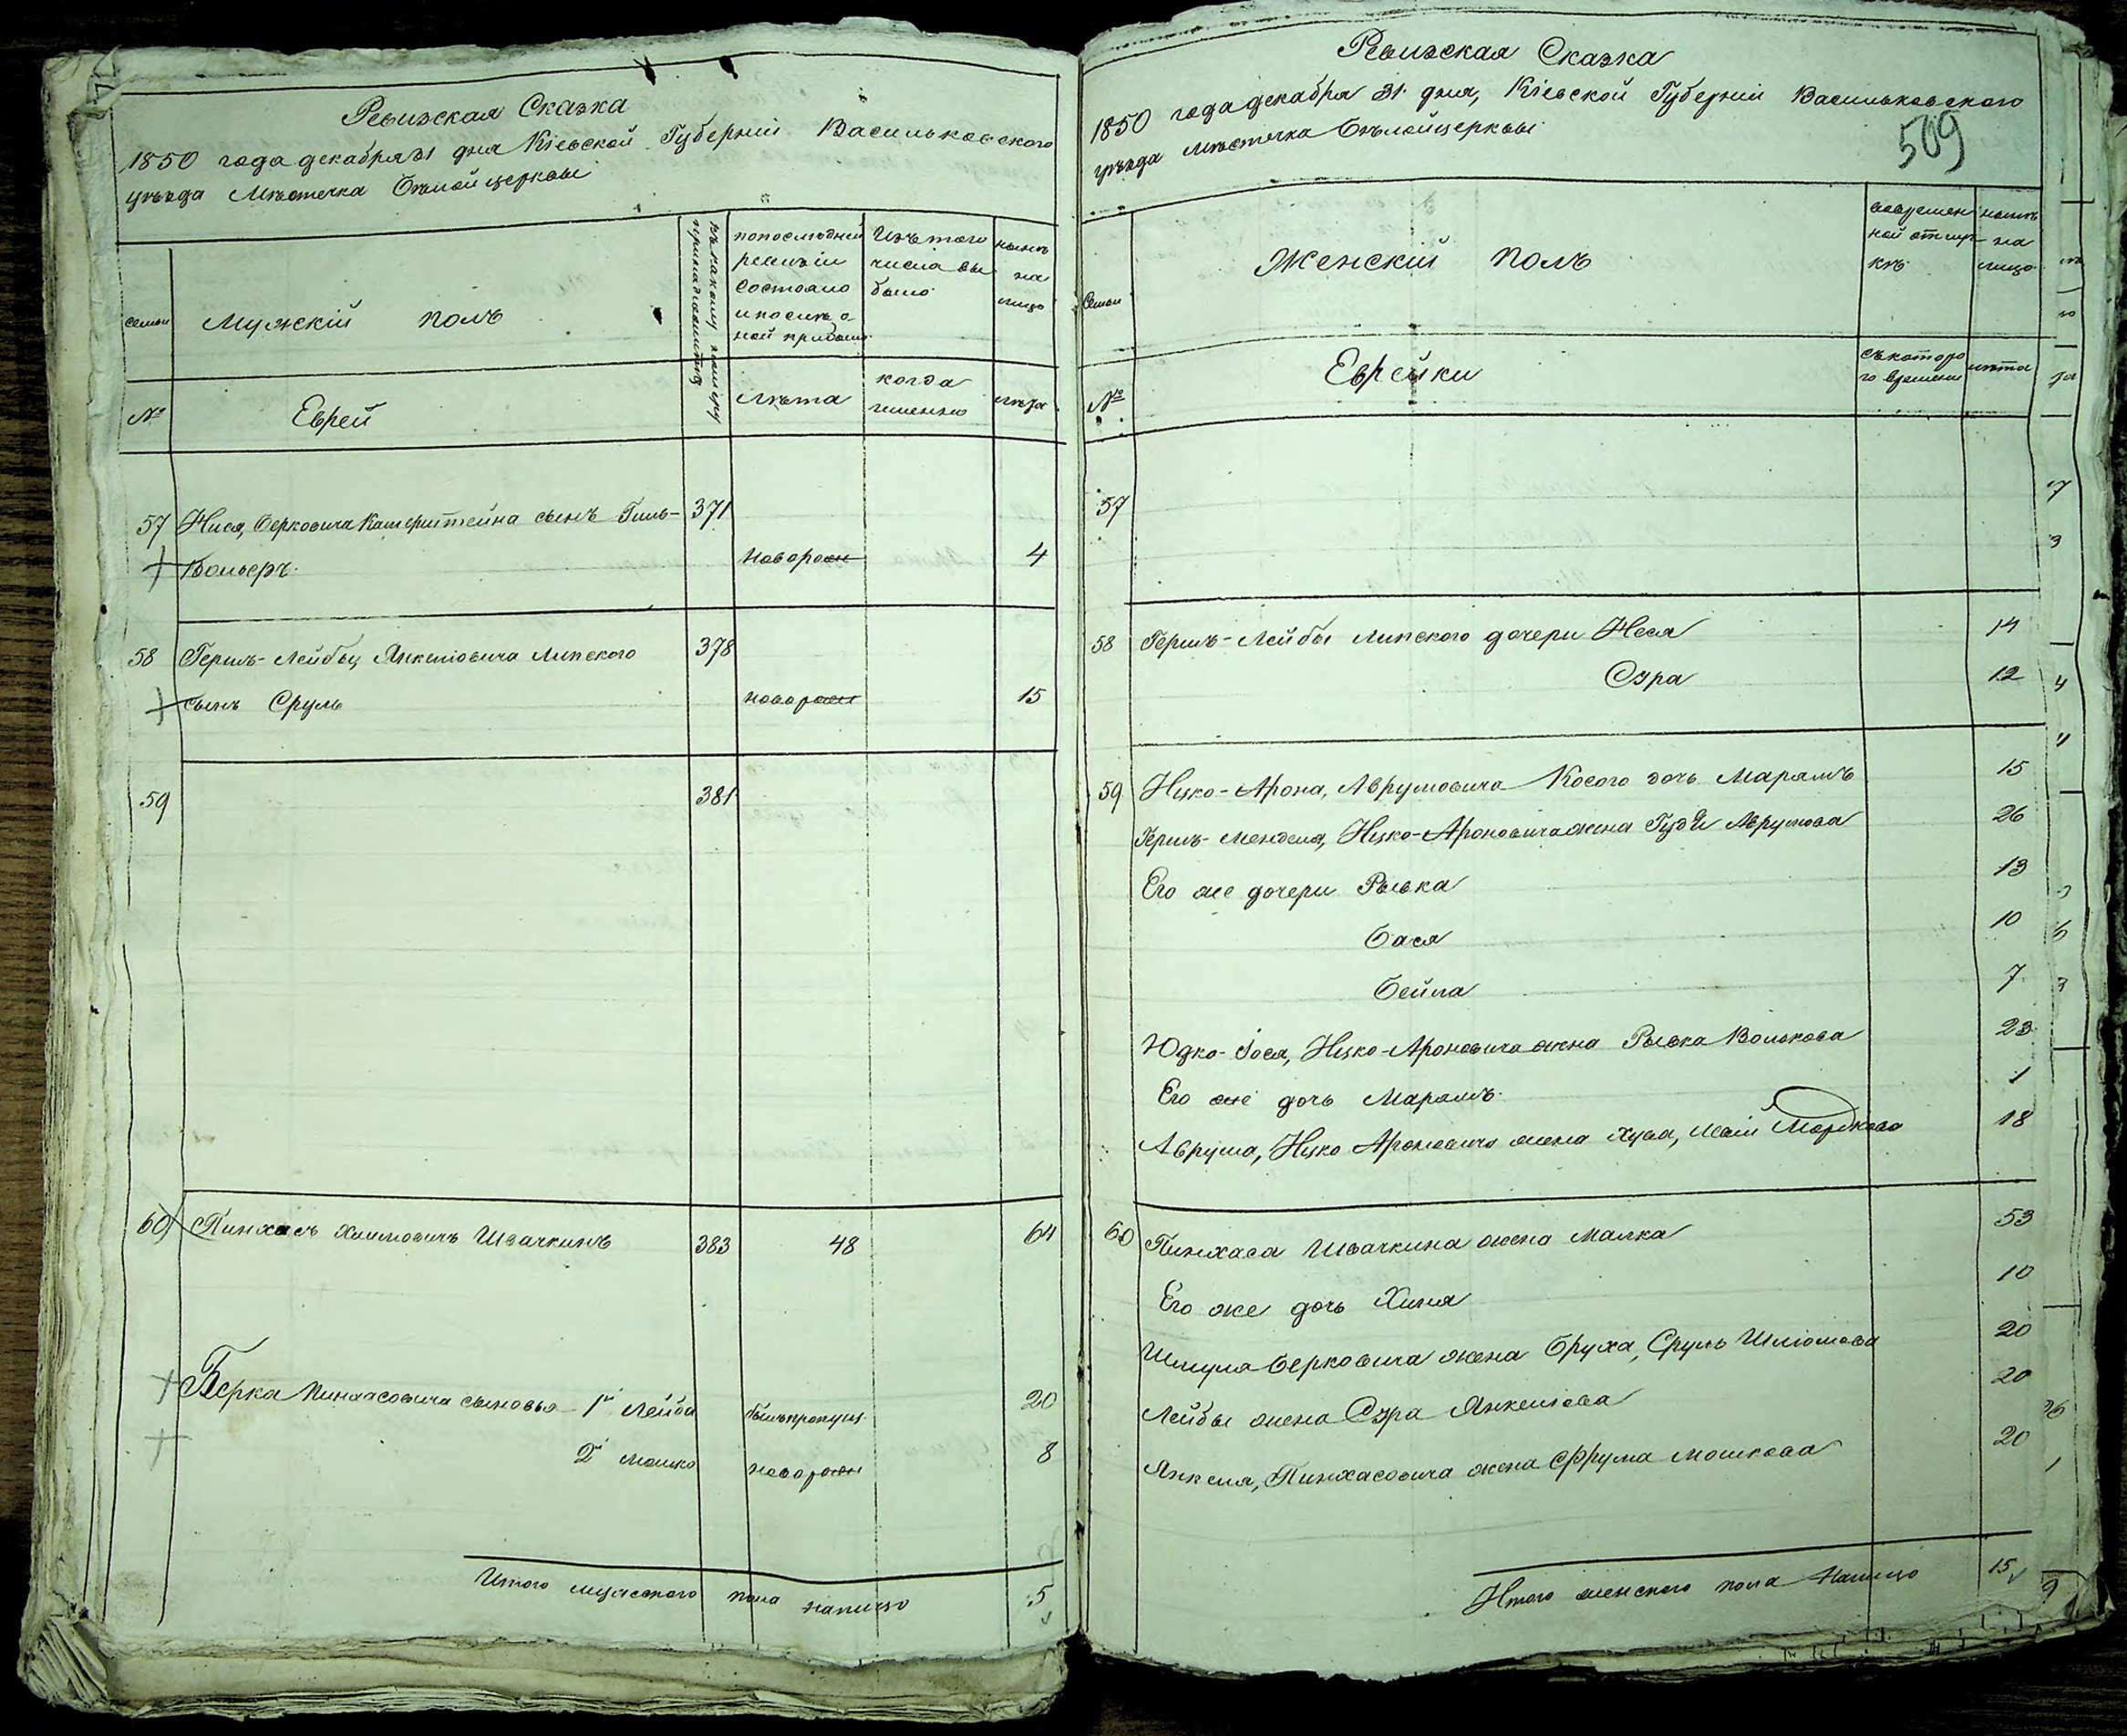 Ревизская Сказка
1850 года декабря 31 дня Кіевской Губерніи Васильковского
уѣзда Мѣстечка Бѣлойцеркви
семьи
Мужскій полъ
къ какому номеру принадлежитъ
попоследней ревизіи состояло и после оной прибыло
Изъ того числа выбыло
нынѣ на лицо
№
Еврей
лѣта
когда именно
лѣта
57 Нися, Берковича Камерштейна сынъ Гиль- 371
Вольфъ новорожд 4
58 Гершъ-Лейбы Янкелiовича Липского 378
сынъ Сруль новорожд 15
59 381
60 Пинхасъ Хаимовичъ Швачкинъ 383 48 64
Берка Пинхасовича сыновья 1й Лейба былъ пропущ. 20
2й Мошко новорожд 8
Итого мужского пола налицо 5
Ревизская Сказка
1850 года декабря 31 дня, Кіевской Губерніи Васильковского
уѣзда мѣстечка Бѣлойцеркви
509
Семьи
Женскій полъ
во временной отлучкѣ
нынѣ на лицо
№
Еврейки
съ которого времени
лѣта
57
58 Гершъ-Лейбы Липского дочери Неся 14
Сура 12
59 Ицко-Арона, Аврумовича Косого дочь Марямъ 15
Гершъ-Менделя, Ицко-Ароновича жена Аврумова 26
Его же дочери Рывка 13
Бася 10
Бейла 7
Юдко-Іося, Ицко-Ароновича жена Рывка Волькова 23
Его же дочь Марямъ 1
Аврума, Ицко Ароновича жена Хува, Мордкова 18
60 Пинхаса Швачкина жена Малка 53
Его же дочь Хиня 10
Шмуля Берковича жена Бруха, Сруль Шліомова 20
Лейбы жена Сура Янкелiова 20
Янкеля, Пинхасовича жена Фрума Мошкова 20
Итого женского пола налицо 15